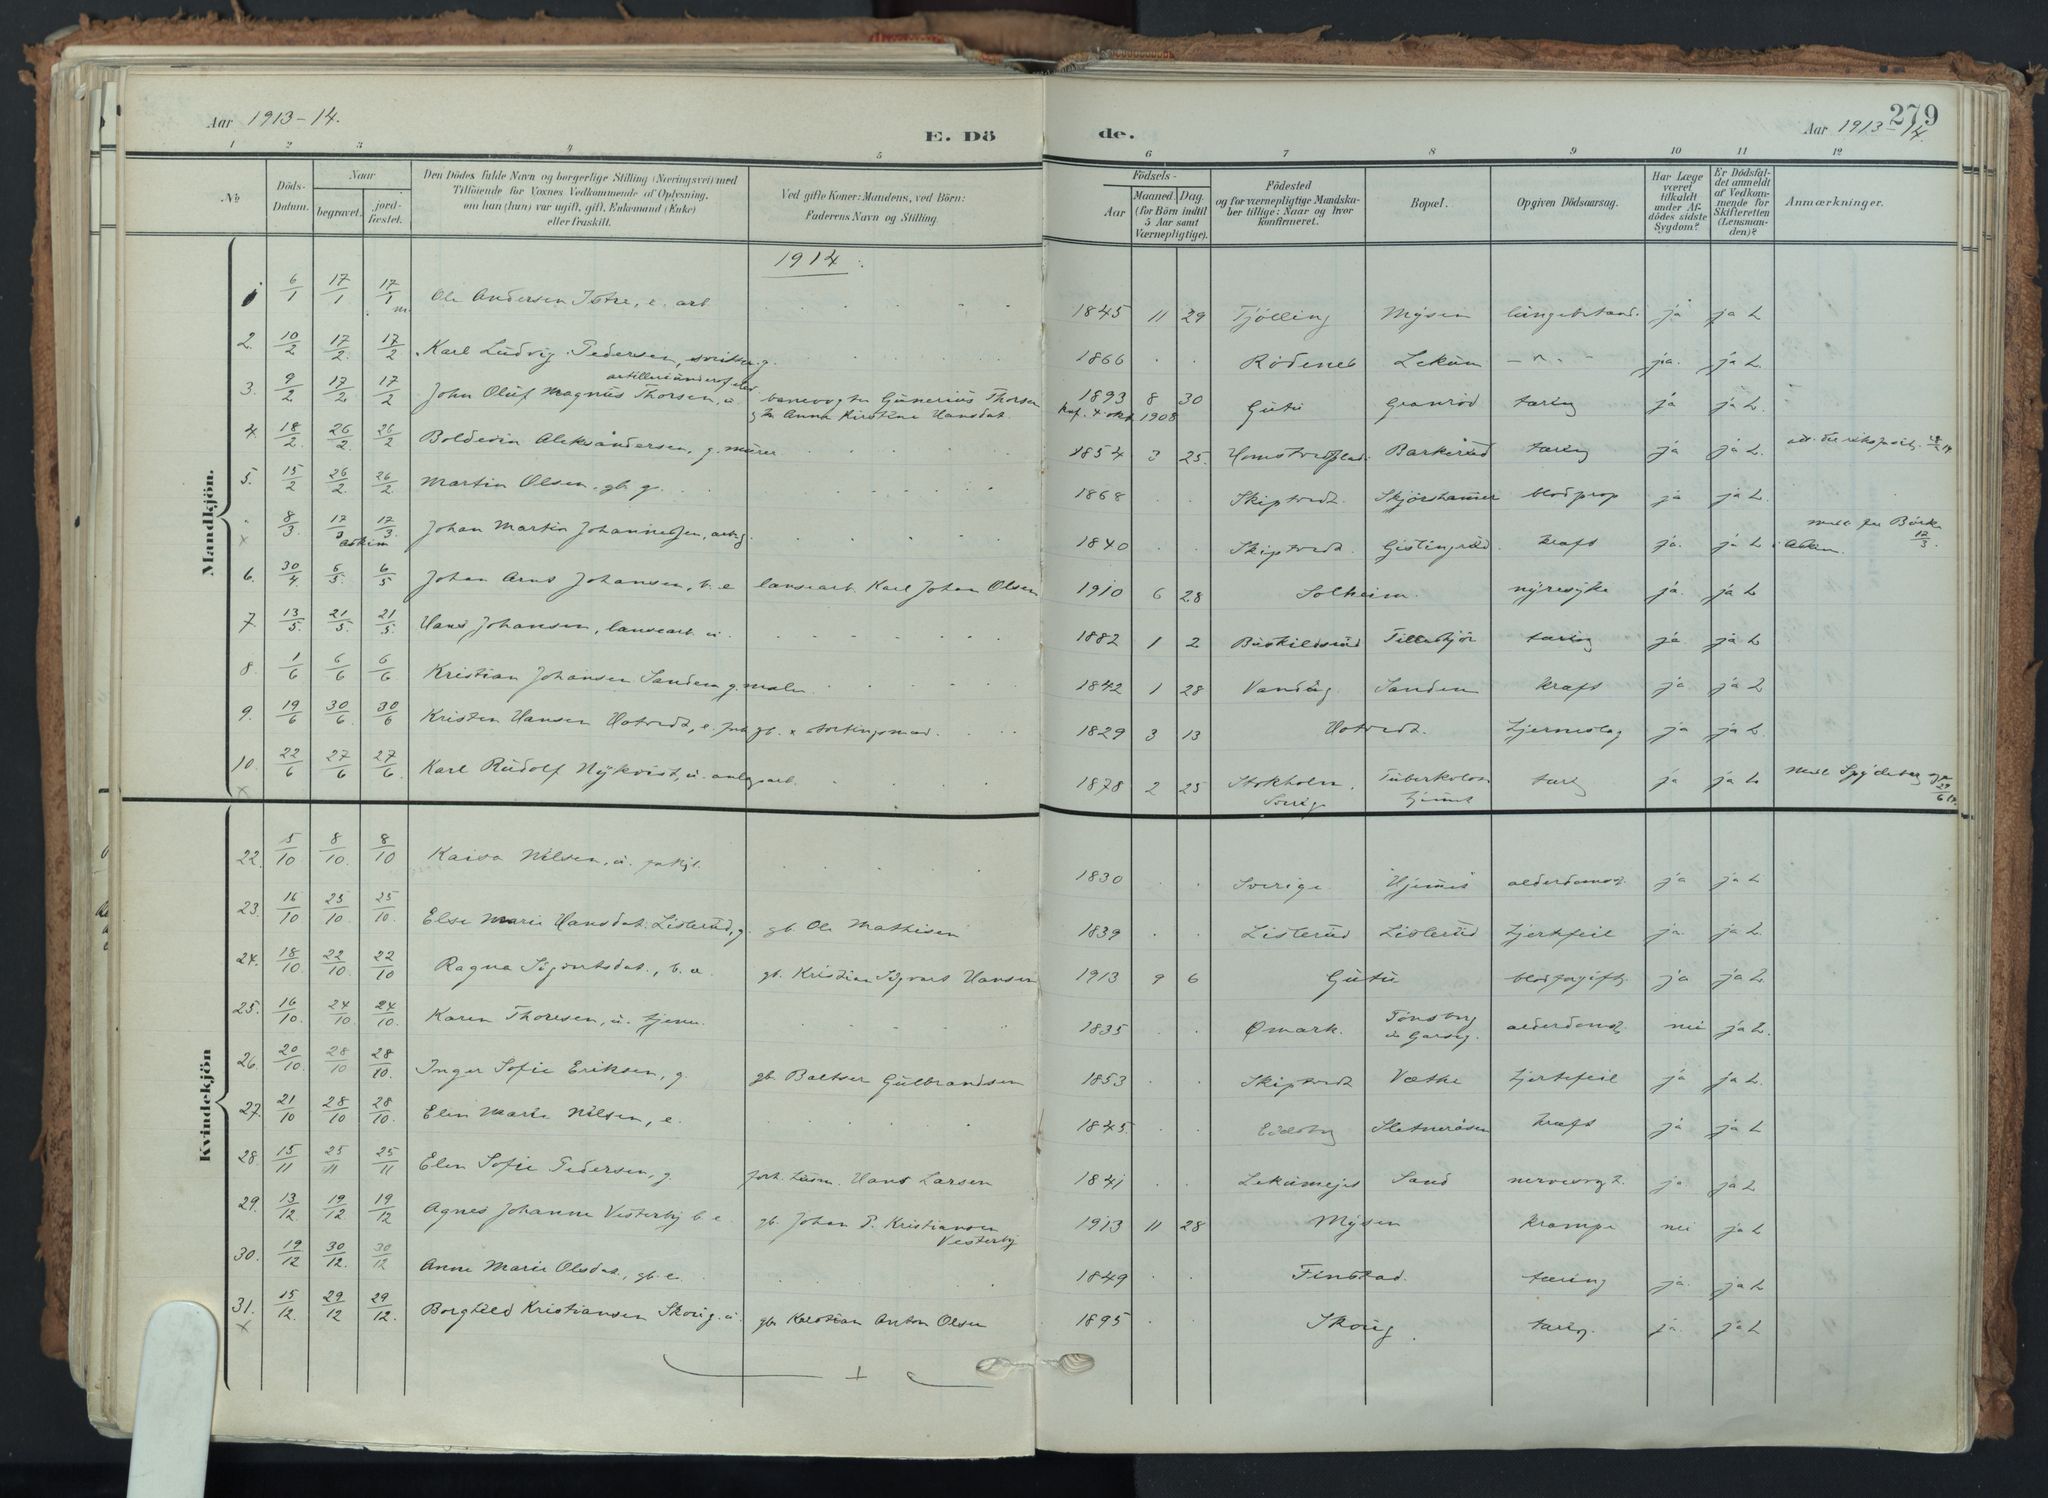 Aar 1913-14.
E. Dö
de.
279
Aar 1913-14.
1 2 3 4 5 6 7 8 9 10 11 12
No
Döds-Datum.
Naar
begravet.
jord-fæstet.
Den Dödes fulde Navn og borgerlige Stilling (Næringsvei) med
Tilföiende for Voxnes Vedkommende af Oplysning,
om han (hun) var ugift, gift, Enkemand (Enke)
eller fraskilt.
Ved gifte Koner: Mandens, ved Börn:
Faderens Navn og Stilling.
Födsels-
Aar
Maaned.
Dag.
(for Börn indtil
5 Aar samt
Værnepligtige).
Födested
og for værnepligtige Mandska-
ber tillige: Naar og hvor
konfirmeret.
Bopæl.
Opgiven Dödsaarsag.
Har Læge
været
tilkaldt
under Af-
dödes sidste
Sygdom?
Er Dödsfal-
det anmeldt
af Vedkom-
mende for
Skifteretten
(Lensman-
den)?
Anmærkninger.
Mandkjön.
1914:
1 6/1 17/1 17/1 Ole Andersen e. arb 1845 11 29 Tjölling Mysen ja ja L
2. 10/2 17/2. 17/2 Karl Ludvig Pedersen, g. 1866 Rödenes Lekum — " — ja. ja L.
artilleriunderof.
3. 9/2 17/2 17/2 John Oluf Magnus Thorsen, u. banevogter Gunerius Thorsen 1893 8 30 Gutu Granrød tæring ja ja L.
Anna Kirstine Hansdat. knf. 4 okt 1908
4. 18/2. 26/2. 26/2 Boldevin Aleksandersen, g. murer 1854 3 25. Barkerud tæring ja ja L.
5. 15/2 26/2. 26/2. Martin Olsen, gb. g. 1868 Skiptvedt. Skjørshammer blodprop ja ja L.
x 8/3 17/3 17/3. Johan Martin Johannessen, 1840 Skiptvedt. kræft ja. ja L Askim. 17/3.
askim
6. 30/4 6/5. 6/5 Johan Arns Johansen, b. e løsearb. Karl Johan Olsen 1910 6 28 Solheim. nyresyke ja. ja L
7. 13/5. 21/5. 21/5. Hans Johansen, løsearb. u. 1882 1 2 tæring ja ja L.
8 1/6 6/6 6/6 Kristian Johansen Sanden g. maler 1842 1 28 Sanden kræft ja ja L
9. 19/6 30/6. 30/6 Kristen Hansen Hotvedt, e. gb. x stortingsmand. 1829 3 13 Hotvedt. hjerneslag ja ja L.
10. x 22/6 27/6 27/6. Karl Rudolf Nykvist, u. anlegsarb. 1878 2 25 Stokholm, Sverig Tuberkulose hjemmet tæring ja ja L Spydeberg
Kvindekjön
22. 5/10 8/10. 8/10 Kaisa Nilsen, u. 1830 Sverige. Hjemmet alderdomsst. ja ja L
23. 16/10 25/10. 25/10. Else Marie Hansdat. Listerud, g. gb. Ole Mathisen 1839 Listerud Listerud hjertefeil ja. ja L.
24. 18/10. 22/10. 22/10 Ragna Sigvartsdat., b. e. gb. Kristian Sigvart Hansen 1913 9 6 Gutu blodforgiftg. ja ja L.
25. 16/10. 24/10. 24/10. Karen Thoresen, u. tjener. 1835 Ømark. Tønsberg alderdomsst. nei ja L.
26. 20/10. 28/10 28/10. Inger Sofie Eriksen, g. gb. Baltser Gulbrandsen 1853 Skiptvedt Væthe hjertefeil ja ja L.
27. 21/10 28/10 28/10. Elen Marie Nilsen, e. 1845. Eidsberg Sletneråsen kræft ja ja L
28. 15/11 25/11 25/11 Elen Sofie Pedersen, g. forh. husm. Hans Larsen 1841 Lekumejet Sand ja ja L
29. 13/12. 19/12. 19/12 Agnes Johanne Vesterby b. e. gb. Johan P. Kristiansen Vesterby 1913 11 28 Mysen krampe nei ja L
30. 19/12 30/12. 30/12 Anne Marie Olsdat., gb. e. 1849 Finstad. tæring ja. ja L
31. x 15/12. 29/12 29/12. Borghild Kristiansen Skoug. u. gb. Kristian Anton Olsen 1895 Skoug. tæring. ja. ja L